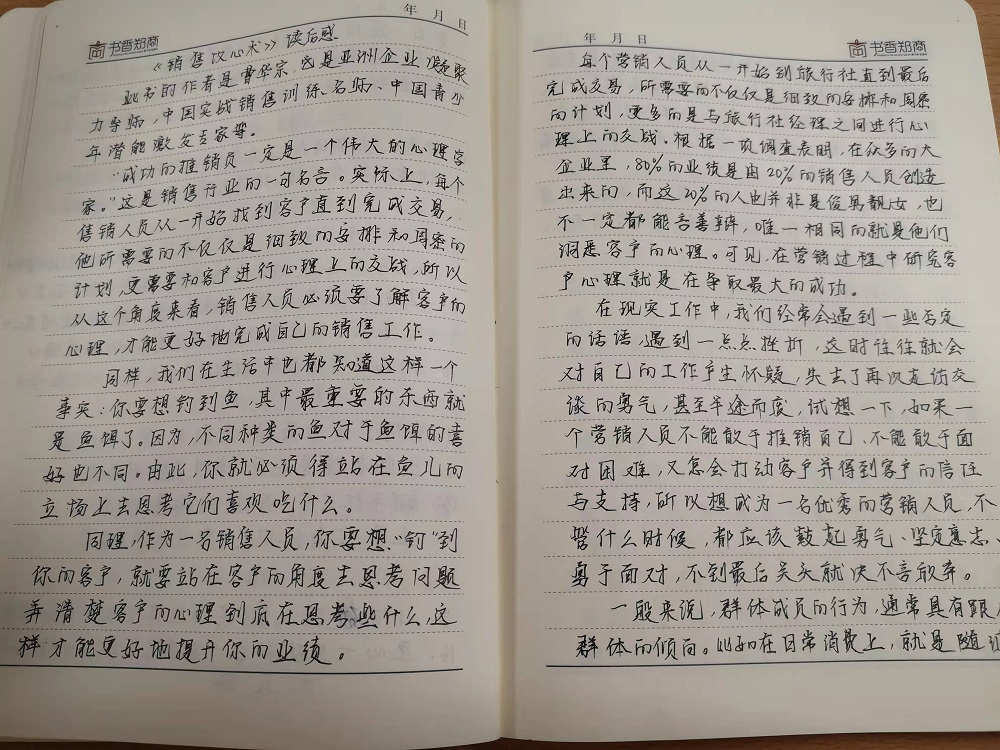 年 月 日
书香知商
《销售攻心术》读后感
此书的作者是曹华宗,也是亚洲企业凝聚
力导师,中国实战销售训练名师、中国青少
年潜能激发专家等。
"成功的推销员一定是一个伟大的心理学
家。"这是销售行业的一句名言。实际上,每个
售销人员从一开始找到客户直到完成交易,
他所需要的不仅仅是细致的安排和周密的
计划,更需要和客户进行心理上的交战,所以
从这个角度来看,销售人员必须要了解客户的
心理,才能更好地完成自己的销售工作。
同样,我们在生活中也都知道这样一个
事实:你要想钓到鱼,其中最重要的东西就
是鱼饵了。因为,不同种类的鱼对于鱼饵的喜
好也不同。由此,你就必须得站在鱼儿的
立场上去思考它们喜欢吃什么。
同理,作为一名销售人员,你要想"钓"到
你的客户,就要站在客户的角度去思考问题
弄清楚客户的心理到底在思考些什么,这
样才能更好地提升你的业绩。
年 月 日
书香知商
每个营销人员从一开始到旅行社直到最后
完成交易,所需要的不仅仅是细致的安排和周密
的计划,更多的是与旅行社经理之间进行心
理上的交战。根据一项调查表明,在众多的大
企业里,80%的业绩是由20%的销售人员创造
出来的,而这20%的人也并非是俊男靓女,也
不一定都能言善辩,唯一相同的就是他们
洞悉客户的心理。可见,在营销过程中研究客
户心理就是在争取最大的成功。
在现实工作中,我们经常会遇到一些否定
的话语,遇到一点点挫折,这时往往就会
对自己的工作产生怀疑,失去了再次走访交
谈的勇气,甚至半途而废,试想一下,如果一
个营销人员不能敢于推销自己、不能敢于面
对困难,又怎会打动客户并得到客户的信任
与支持,所以想成为一名优秀的营销人员,不
管什么时候,都应该鼓起勇气、坚定意志、
勇于面对,不到最后关头就决不言放弃。
一般来说,群体成员的行为,通常具有跟
群体的倾向。比如在日常消费上,就是随